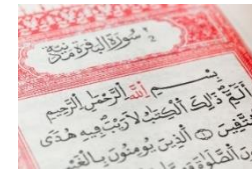 سورة البقرة مدنية
بسم الله الرحمن الرحيم
الٓمٓ ذلك الكتب لا ريب فيه هدى
للمتقين الذين يؤمنون بالغيب
الصلوة